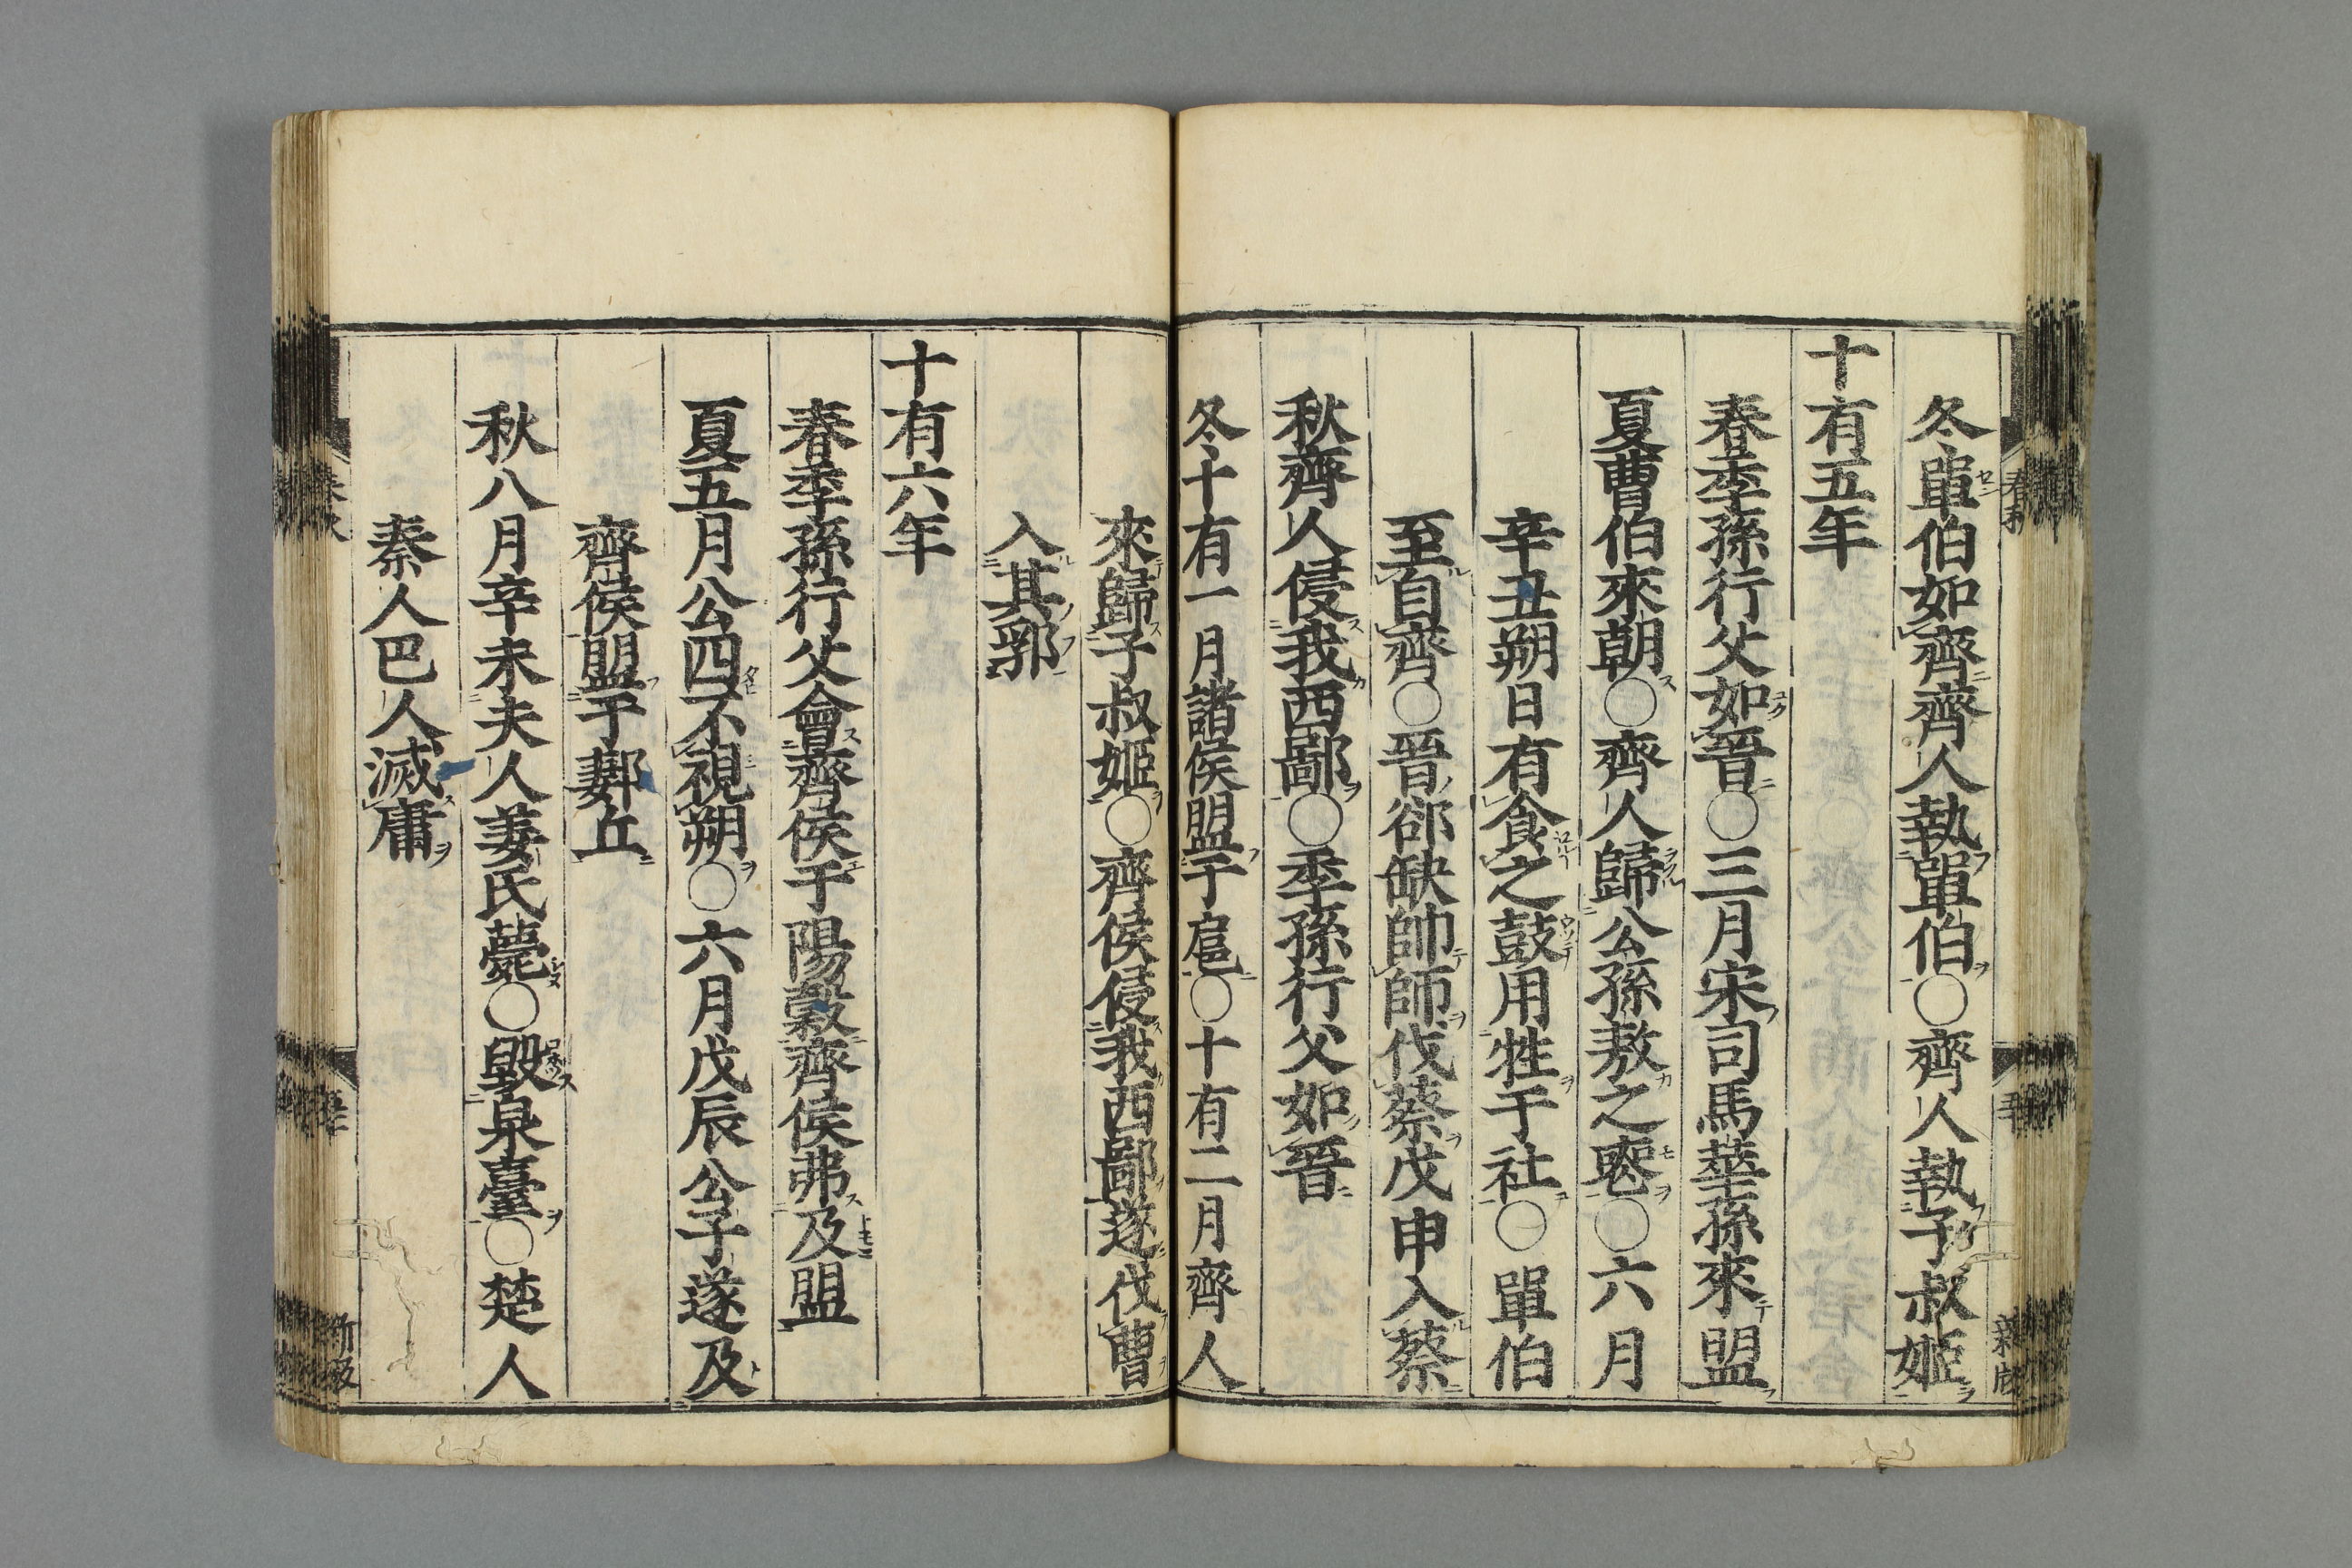 冬單伯如齊齊人執單伯〇齊人執子叔姬
十有五年
春季孫行父如晉〇三月宋司馬華孫來盟
夏曹伯來朝〇齊人歸公孫敖之喪〇六月
辛丑朔日有食之鼓用牲于社〇單伯
至自齊〇晉郤缺帥師伐蔡戊申入蔡
秋齊人侵我西鄙〇季孫行父如晉
冬十有一月諸侯盟于扈〇十有二月齊人
來歸子叔姬〇齊侯侵我西鄙遂伐曹
入其郛
十有六年
春季孫行父會齊侯于陽穀齊侯弗及盟
夏五月公四不視朔〇六月戊辰公子遂及
齊侯盟于郪丘
秋八月辛未夫人姜氏薨〇毀泉臺〇楚人
秦人巴人滅庸